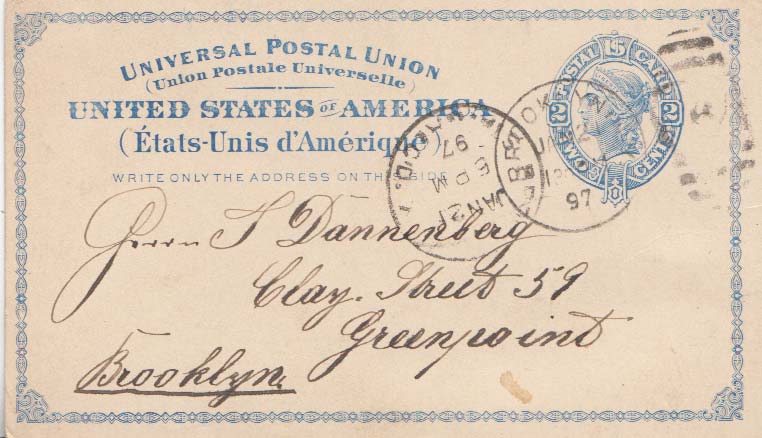 UNIVERSAL POSTAL UNION
(Union Postale Universelle)
UNITED STATES OF AMERICA
(États-Unis d'Amérique)
WRITE ONLY THE ADDRESS ON THIS SIDE
POSTAL CARD
2 2
TWO CENTS
BROOKLYN
JAN 2
97
JAN 21
5 PM
97
Herrn I Dannenberg
Clay. Street 59
Greenpoint
Brooklyn